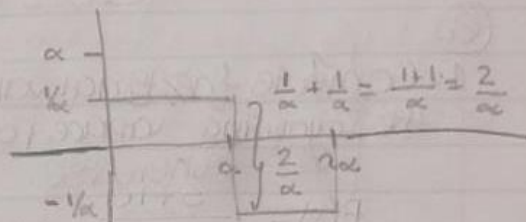 α
1/α
1/α + 1/α = 1+1/α = 2/α
α
2/α
2α
-1/α